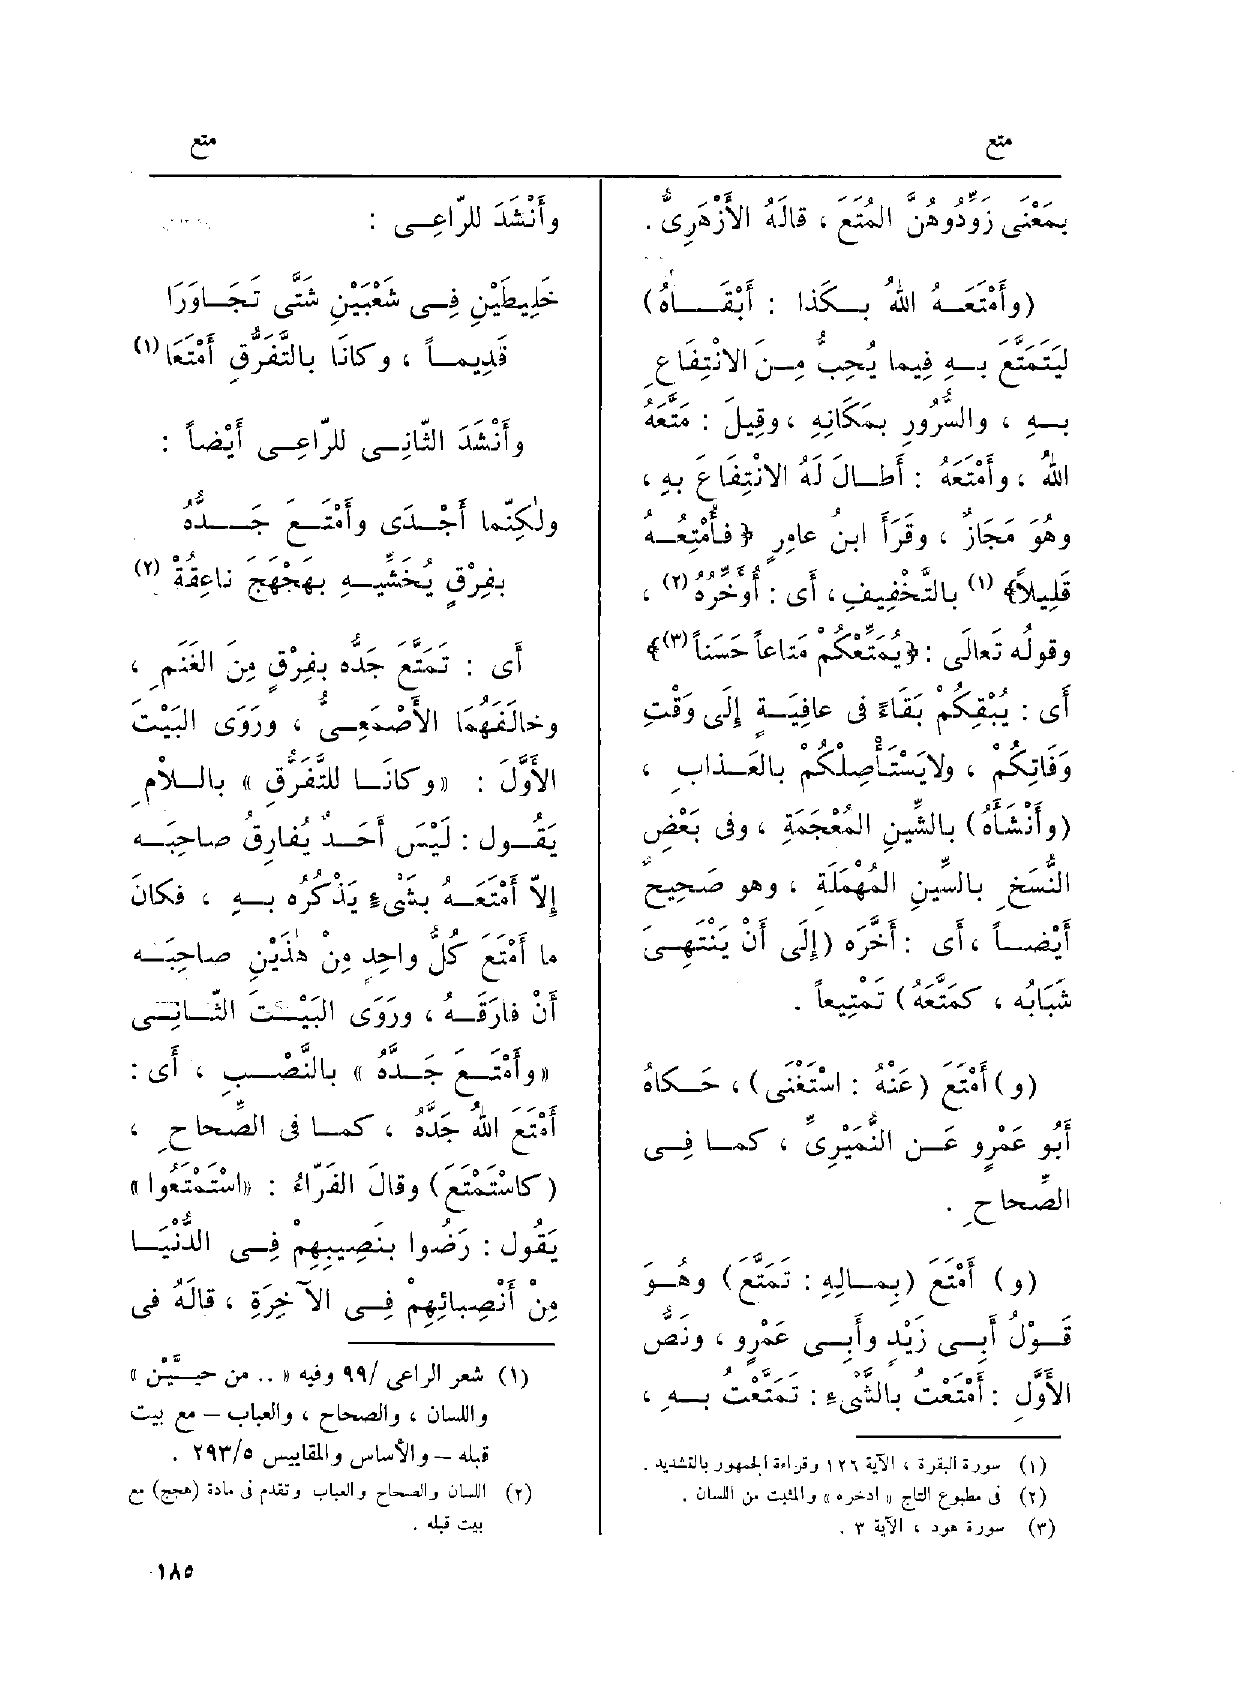 متع
متع
بِمَعْنَى زَوِّدُوهُنَّ المُتَعَ ، قالَهُ الأَزْهَرِىُّ .
(وأَمْتَعَـهُ اللهُ بـكذا : أَبْقَـاهُ)
لِيَتَمَتَّعَ بـهِ فِيما يُحِبُّ مِـن الانْتِفَاعِ
بـهِ ، والسُّرُورِ بِمَكَانِهِ ، وقِيلَ : مَتَّعَهُ
اللهُ ، وأَمْتَعَهُ : أَطالَ لَهُ الانْتِفَاعَ بِهِ ،
وهُوَ مَجَازٌ ، وقَرَأَ ابنُ عامِرٍ ﴿فَأُمْتِعُـهُ
قَلِيلاً﴾ (١) بالتَّخْفِيفِ ، أى : أُؤَخِّرُهُ (٢) ،
وقولُه تَعالَى : ﴿يُمَتِّعْكُمْ مَتاعاً حَسَناً (٣)﴾
أَى : يُبْقِكُمْ بَقَاءً فى عافِيَـةٍ إِلَى وَقْتِ
وَفَاتِكُمْ ، ولايَسْتَأْصِلْكُمْ بالعَـذابِ ،
(وأَنْشَأَهُ) بالشِّينِ المُعْجَمَةِ ، وفى بَعْضِ
النُّسَخِ بالسِّينِ المُهْمَلَةِ ، وهو صَحِيحٌ
أَيْضـاً ، أَى : أَخَّرَه (إِلَى أَنْ يَنْتَهِـىَ
شَبَابُه ، كمَتَّعَهُ) تَمْتِيعاً .
(و) أَمْتَعَ (عَنْهُ : اسْتَغْنَى) ، حَـكَاهُ
أَبُو عَمْرٍو عَـن النُّمَيْرِىِّ ، كمـا فِـى
الصِّحاحِ .
(و) أَمْتَعَ (بِمـالِهِ : تَمَتَّعَ) وهُـوَ
قَـوْلُ أَبِـى زَيْدٍ وأَبِـى عَمْرٍو ، ونَصُّ
الأَوَّلِ : أَمْتَعْتُ بالشَّىْءِ : تَمَتَّعْتُ بـهِ ،
(١) سورة البقرة ، الآية ١٢٦ وقراءة الجمهور بالتشديد .
(٢) فى مطبوع التاج « ادخره » والمثبت من اللسان .
(٣) سورة هود ، الآية ٣ .
وأَنْشَدَ للرّاعِـى :
خَلِيطَيْنِ فِـى شَعْبَيْنِ شَتَّى تَجَـاوَرَا
قَدِيمـاً ، وكانَا بالتَّفَرُّقِ أَمْتَعَا (١)
وأَنْشَدَ الثّانِـى للرّاعِـى أَيْضاً :
ولٰكِنَّما أَجْـدَى وأَمْتَـعَ جَـدُّه
بفِرْقٍ يُخَشِّيـهِ بهَجْهَجَ ناعِقُهْ (٢)
أَى : تَمَتَّعَ جَدُّه بفِرْقٍ مِنَ الغَنَمِ ،
وخالَفَهُمَا الأَصْمَعِـىُّ ، ورَوَى البَيْتَ
الأَوَّلَ : «وكانَـا للتَّفَرُّقِ » بالـلامِ
يَقُـول : لَيْسَ أَحَـدٌ يُفارِقُ صاحِبَـه
إِلاّ أَمْتَعَـهُ بشْىءٍ يَذْكُرُه بـهِ ، فكانَ
ما أَمْتَعَ كُلُّ واحِدٍ مِنْ هٰذَيْنِ صاحِبَـه
أَنْ فارَقَـهُ ، ورَوَى البَيْـتَ الثّـانِـى
«وأَمْتَـعَ جَـدَّهُ » بالنَّصْـبِ ، أَى :
أَمْتَعَ اللهُ جَدَّهُ ، كمـا فى الصِّحاحِ ،
(كاسْتَمْتَعَ) وقالَ الفَرّاءُ : «اسْتَمْتَعُوا »
يَقُول : رَضُوا بنَصِيبِهِمْ فِـى الدُّنْيَـا
مِنْ أَنْصِبائِهِمْ فِـى الآخِرَةِ ، قالَهُ فى
(١) شعر الراعى /٩٩ وفيه « .. من حَيَّيْن »
واللسان ، والصحاح ، والعباب – مع بيت
قبله – والأساس والمقاييس ٥/٢٩٣ .
(٢) اللسان والصحاح والعباب وتقدم فى مادة (هجج) مع
بيت قبله .
١٨٥